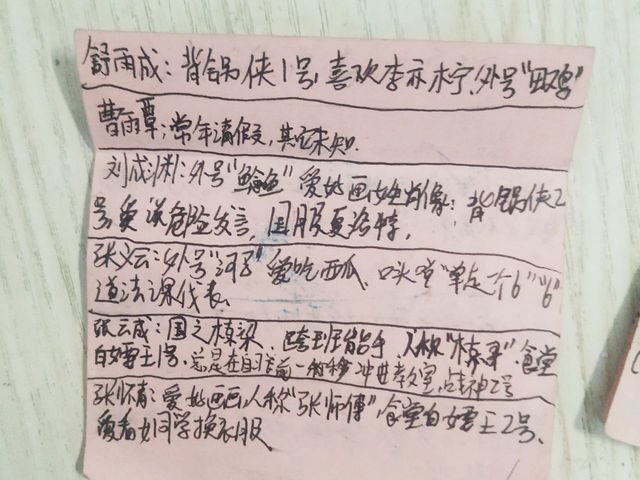 舒雨成：背锅侠1号，喜欢李亦柠，外号"田鸡"
曹雨覃：常年请假，其它未知.
刘成渊：外号"鲶鱼"爱好画 肖像；背锅侠2
号，负 危险发言，国服夏洛特，
张义云：外号"河" 爱吃西瓜，口头 "单走一个6""6"
道法课代表、
张云成：国之栋梁、跨班 手，人称"栋 "食堂
自 王1号.总是在 前一秒 冲进教室，战神2号
张怀 ：爱好画画，人称"张师傅"，食堂自 王2号、
爱看女同学换衣服